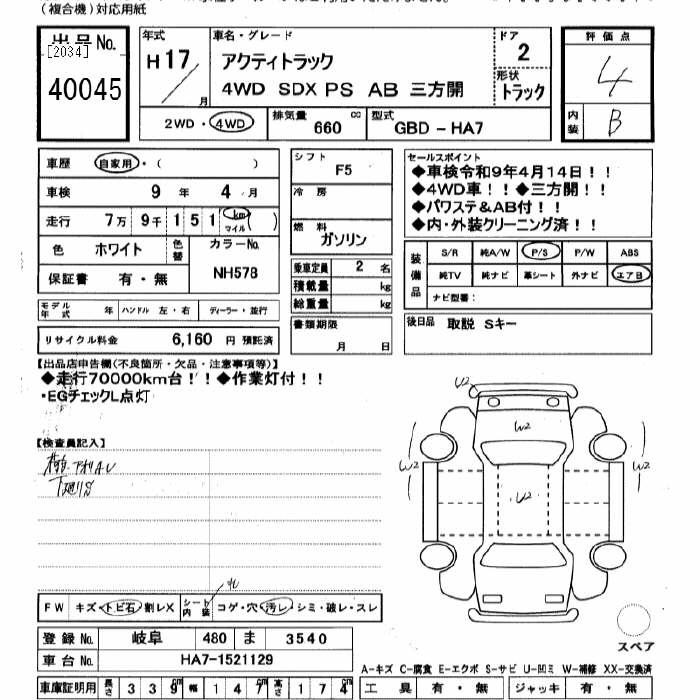 (複合機)対応用紙
出品No.
[2034]
40045
年式
H17
月
車名・グレード
アクティトラック
4WD SDX PS AB 三方開
ドア
2
形状
トラック
評価点
4
内装
B
2WD・4WD
排気量
660
cc
型式
GBD-HA7
車歴
自家用・( )
車検
9 年 4 月
走行
7万 9千 151 km マイル ( )
色
ホワイト
色替
カラーNo.
NH578
保証書
有・無
シフト
F5
冷房
燃料
ガソリン
乗車定員
2 名
積載量
kg
総重量
kg
セールスポイント
◆車検令和9年4月14日!!
◆4WD車!!◆三方開!!
◆パワステ&AB付!!
◆内・外装クリーニング済!!
装備品
S/R 純A/W P/S P/W ABS
純TV 純ナビ 革シート 外ナビ エアB
ナビ型番:
モデル年式
年
ハンドル 左・右
ディーラー・並行
リサイクル料金 6,160 円 預託済
書類期限
月 日
後日品 取説 Sキー
【出品店申告欄(不良箇所・欠品・注意事項等)】
◆走行70000km台!!◆作業灯付!!
・EGチェックL点灯
【検査員記入】
下廻りS
U2
W2
W2
W2
U2
FW キズ・トビ石・割レX
シート内装 コゲ・穴・汚レ・シミ・破レ・スレ
登録No. 岐阜 480 ま 3540
車台No. HA7-1521129
スペア
A-キズ C-腐食 E-エクボ S-サビ U-凹ミ W-補修 XX-交換済
車庫証明用 長さ 339cm 幅 147cm 高さ 174cm
工具 有・無 ジャッキ 有・無